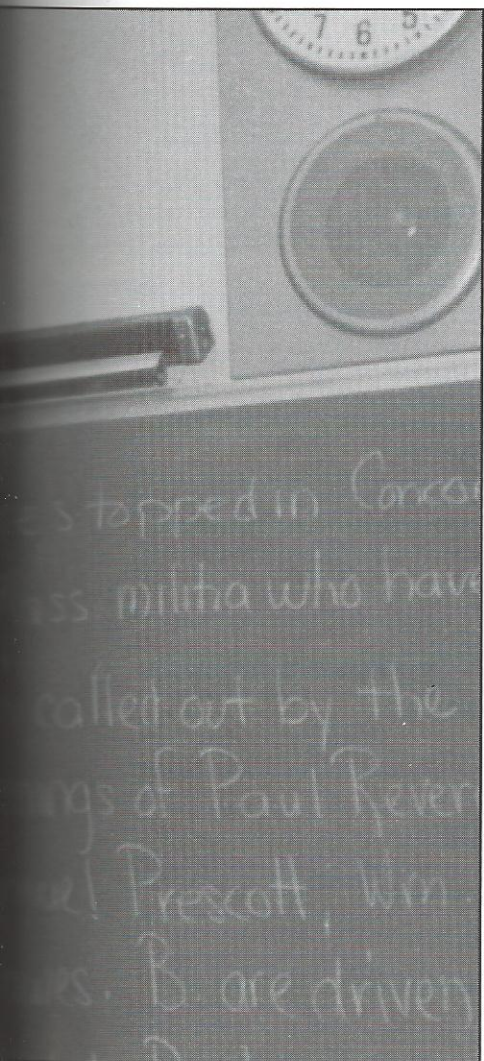 7 6 5
stopped in Conco
ss militia who have
called out by the
ings of Paul Rever
el Prescott, Wm.
es. B. are driven